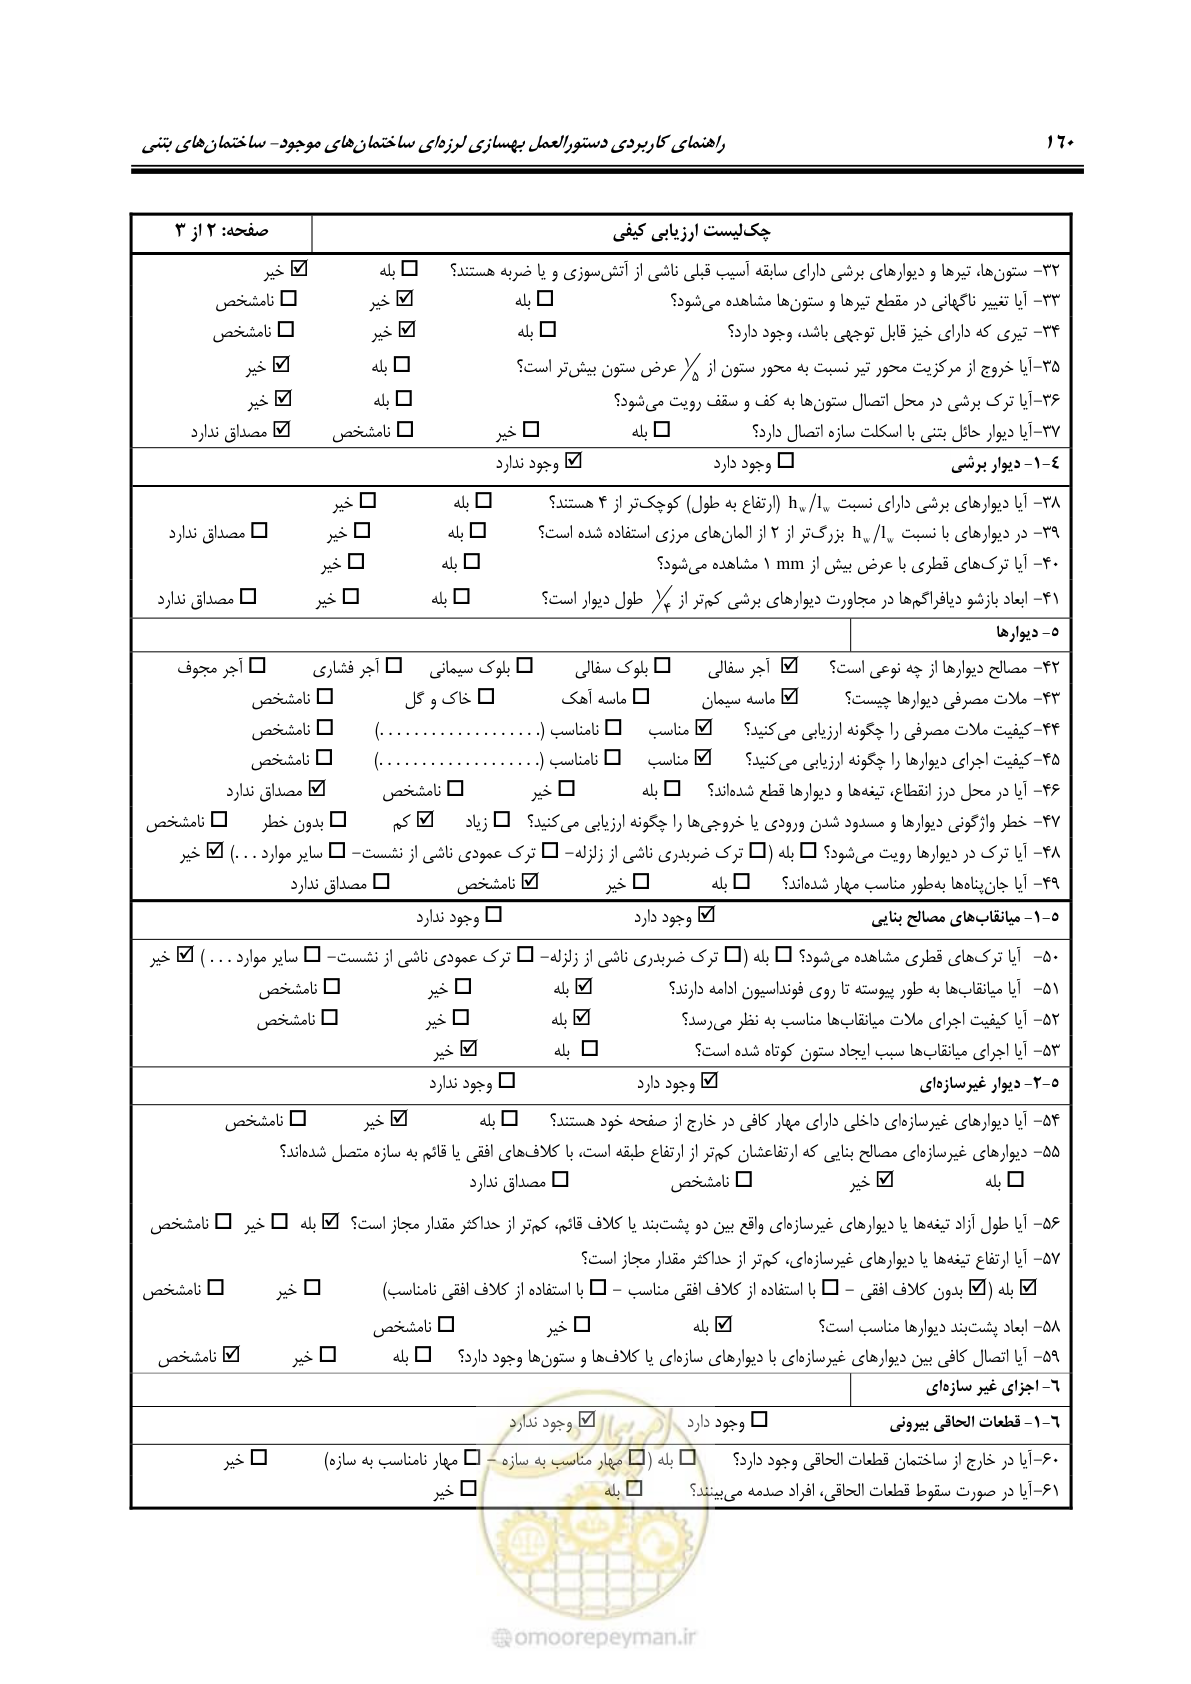 ۱۶۰ راهنمای کاربردی دستورالعمل بهسازی لرزه‌ای ساختمان‌های موجود- ساختمان‌های بتنی
چک‌لیست ارزیابی کیفی صفحه: ۲ از ۳
۳۲- ستون‌ها، تیرها و دیوارهای برشی دارای سابقه آسیب قبلی ناشی از آتش‌سوزی و یا ضربه هستند؟ ☐ بله ☑ خیر
۳۳- آیا تغییر ناگهانی در مقطع تیرها و ستون‌ها مشاهده می‌شود؟ ☐ بله ☑ خیر ☐ نامشخص
۳۴- تیری که دارای خیز قابل توجهی باشد، وجود دارد؟ ☐ بله ☑ خیر ☐ نامشخص
۳۵-آیا خروج از مرکزیت محور تیر نسبت به محور ستون از ۱/۵ عرض ستون بیش‌تر است؟ ☐ بله ☑ خیر
۳۶-آیا ترک برشی در محل اتصال ستون‌ها به کف و سقف رویت می‌شود؟ ☐ بله ☑ خیر
۳۷-آیا دیوار حائل بتنی با اسکلت سازه اتصال دارد؟ ☐ بله ☐ خیر ☐ نامشخص ☑ مصداق ندارد
۴-۱- دیوار برشی ☐ وجود دارد ☑ وجود ندارد
۳۸- آیا دیوارهای برشی دارای نسبت hw/lw (ارتفاع به طول) کوچک‌تر از ۴ هستند؟ ☐ بله ☐ خیر
۳۹- در دیوارهای با نسبت hw/lw بزرگ‌تر از ۲ از المان‌های مرزی استفاده شده است؟ ☐ بله ☐ خیر ☐ مصداق ندارد
۴۰- آیا ترک‌های قطری با عرض بیش از ۱ mm مشاهده می‌شود؟ ☐ بله ☐ خیر
۴۱- ابعاد بازشو دیافراگم‌ها در مجاورت دیوارهای برشی کم‌تر از ۱/۴ طول دیوار است؟ ☐ بله ☐ خیر ☐ مصداق ندارد
۵- دیوارها
۴۲- مصالح دیوارها از چه نوعی است؟ ☑ آجر سفالی ☐ بلوک سفالی ☐ بلوک سیمانی ☐ آجر فشاری ☐ آجر مجوف
۴۳- ملات مصرفی دیوارها چیست؟ ☑ ماسه سیمان ☐ ماسه آهک ☐ خاک و گل ☐ نامشخص
۴۴-کیفیت ملات مصرفی را چگونه ارزیابی می‌کنید؟ ☑ مناسب ☐ نامناسب (...................) ☐ نامشخص
۴۵-کیفیت اجرای دیوارها را چگونه ارزیابی می‌کنید؟ ☑ مناسب ☐ نامناسب (...................) ☐ نامشخص
۴۶- آیا در محل درز انقطاع، تیغه‌ها و دیوارها قطع شده‌اند؟ ☐ بله ☐ خیر ☐ نامشخص ☑ مصداق ندارد
۴۷- خطر واژگونی دیوارها و مسدود شدن ورودی یا خروجی‌ها را چگونه ارزیابی می‌کنید؟ ☐ زیاد ☑ کم ☐ بدون خطر ☐ نامشخص
۴۸- آیا ترک در دیوارها رویت می‌شود؟ ☐ بله (☐ ترک ضربدری ناشی از زلزله- ☐ ترک عمودی ناشی از نشست- ☐ سایر موارد ...) ☑ خیر
۴۹- آیا جان‌پناه‌ها به‌طور مناسب مهار شده‌اند؟ ☐ بله ☐ خیر ☑ نامشخص ☐ مصداق ندارد
۵-۱- میانقاب‌های مصالح بنایی ☑ وجود دارد ☐ وجود ندارد
۵۰- آیا ترک‌های قطری مشاهده می‌شود؟ ☐ بله (☐ ترک ضربدری ناشی از زلزله- ☐ ترک عمودی ناشی از نشست- ☐ سایر موارد ... ) ☑ خیر
۵۱- آیا میانقاب‌ها به طور پیوسته تا روی فونداسیون ادامه دارند؟ ☑ بله ☐ خیر ☐ نامشخص
۵۲- آیا کیفیت اجرای ملات میانقاب‌ها مناسب به نظر می‌رسد؟ ☑ بله ☐ خیر ☐ نامشخص
۵۳- آیا اجرای میانقاب‌ها سبب ایجاد ستون کوتاه شده است؟ ☐ بله ☑ خیر
۵-۲- دیوار غیرسازه‌ای ☑ وجود دارد ☐ وجود ندارد
۵۴- آیا دیوارهای غیرسازه‌ای داخلی دارای مهار کافی در خارج از صفحه خود هستند؟ ☐ بله ☑ خیر ☐ نامشخص
۵۵- دیوارهای غیرسازه‌ای مصالح بنایی که ارتفاعشان کم‌تر از ارتفاع طبقه است، با کلاف‌های افقی یا قائم به سازه متصل شده‌اند؟
☐ بله ☑ خیر ☐ نامشخص ☐ مصداق ندارد
۵۶- آیا طول آزاد تیغه‌ها یا دیوارهای غیرسازه‌ای واقع بین دو پشت‌بند یا کلاف قائم، کم‌تر از حداکثر مقدار مجاز است؟ ☑ بله ☐ خیر ☐ نامشخص
۵۷- آیا ارتفاع تیغه‌ها یا دیوارهای غیرسازه‌ای، کم‌تر از حداکثر مقدار مجاز است؟
☑ بله (☑ بدون کلاف افقی - ☐ با استفاده از کلاف افقی مناسب - ☐ با استفاده از کلاف افقی نامناسب) ☐ خیر ☐ نامشخص
۵۸- ابعاد پشت‌بند دیوارها مناسب است؟ ☑ بله ☐ خیر ☐ نامشخص
۵۹- آیا اتصال کافی بین دیوارهای غیرسازه‌ای با دیوارهای سازه‌ای یا کلاف‌ها و ستون‌ها وجود دارد؟ ☐ بله ☐ خیر ☑ نامشخص
۶- اجزای غیر سازه‌ای
۶-۱- قطعات الحاقی بیرونی ☐ وجود دارد ☑ وجود ندارد
۶۰-آیا در خارج از ساختمان قطعات الحاقی وجود دارد؟ ☐ بله (☐ مهار مناسب به سازه - ☐ مهار نامناسب به سازه) ☐ خیر
۶۱-آیا در صورت سقوط قطعات الحاقی، افراد صدمه می‌بینند؟ ☐ بله ☐ خیر
امور پیمان
@omoorepeyman.ir